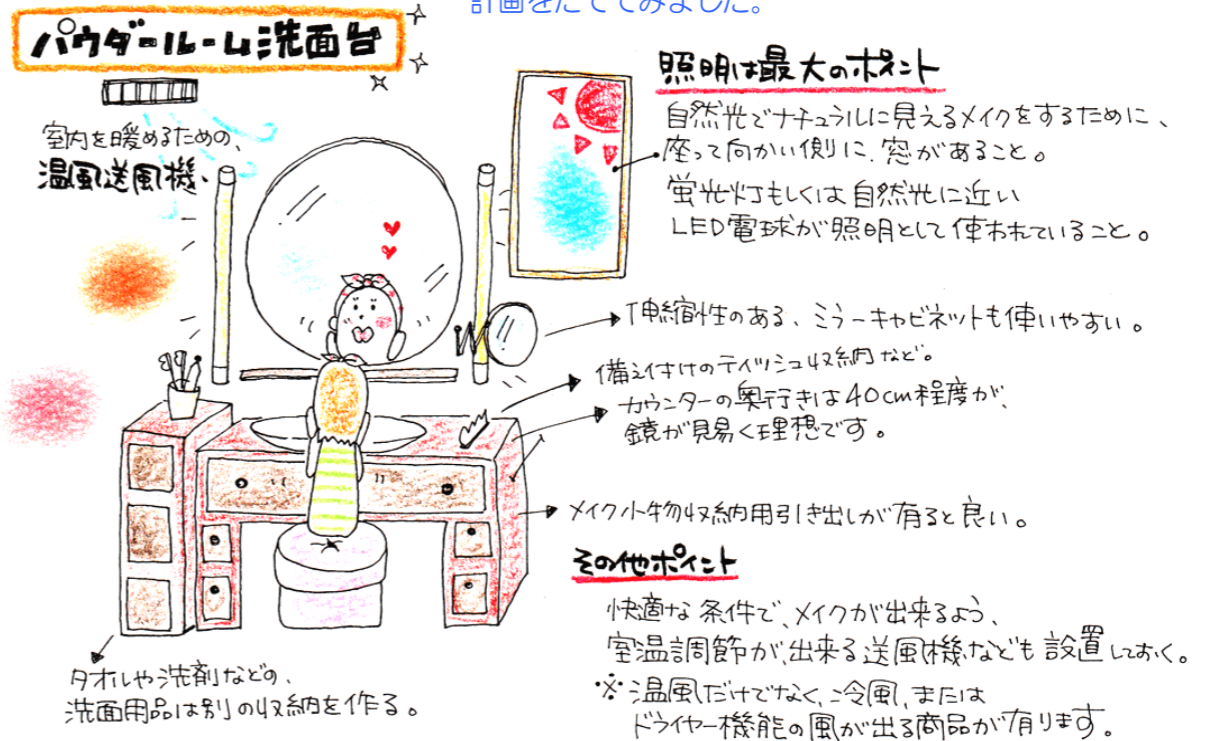 計画をたててみました。
パウダールーム洗面台
室内を暖めるための、
温風送風機
照明は最大のポイント
自然光でナチュラルに見えるメイクをするために、
座って向かい側に、窓があること。
蛍光灯もしくは自然光に近い
LED電球が照明として使われていること。
伸縮性のある、ミラーキャビネットも使いやすい。
備え付けのティッシュ収納など。
カウンターの奥行きは40cm程度が、
鏡が見易く理想です。
メイク小物収納用引き出しが有ると良い。
その他ポイント
快適な条件で、メイクが出来るよう、
室温調節が、出来る送風機なども設置しておく。
※温風だけでなく、冷風、または
ドライヤー機能の風が出る商品が有ります。
タオルや洗剤などの、
洗面用品は別の収納を作る。